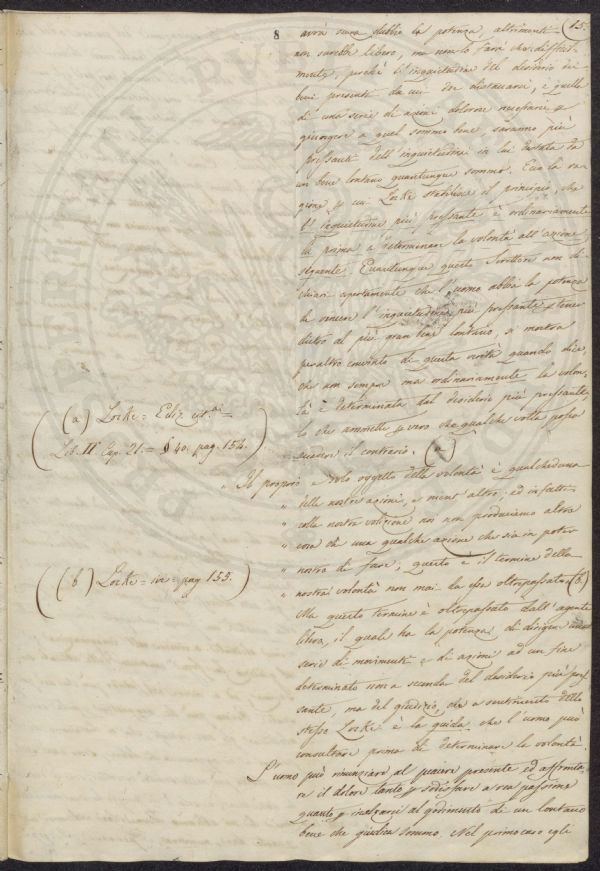 8
(15.
avrà senza dubbio la potenza, altrimenti
non sarebbe libero, ma non lo farà che difficil-
mente, perchè l'inquietudine del desiderio dei
beni presenti da cui dee distaccarsi, e quella
di una serie di azioni dolorose necessarie a
giungere a quel sommo bene, saranno più
pressanti dell'inquietudine in lui destata da
un bene lontano quantunque sommo. Ecco la ra-
gione p cui Locke stabilisce il principio, che
l'inquietudine più pressante è ordinariamente
la prima a determinare la volontà all'azione
seguente. Quantunque questo Scrittore non di-
chiari apertamente che l'uomo abbia la potenza
di vincere l'inquietudine più pressante e tener
dietro al più gran bene lontano, si mostra
peraltro convinto di questa verità quando dice,
che non sempre ma ordinariamente la volon-
tà è determinata dal desiderio più pressante,
lo che ammette p vero che qualche volta possa
succedere il contrario. (a)
(a) Locke = Ediz. cit. =
Lib. II Cap. 21. = § 40. pag. 154.
„ Il proprio e solo oggetto della volontà è qualcheduna
„ delle nostre azioni, e nient'altro; ed in fatti
„ colla nostra volizione noi non produciamo altra
„ cosa che una qualche azione che sia in poter
„ nostro di fare, questo è il termine della
„ nostra volontà non mai da essa oltrepassato (b)
(b) Locke = ivi = pag. 155.
Ma questo termine è oltrepassato dall'agente
libero, il quale ha la potenza di dirigere una
serie di movimenti e di azioni ad un fine
determinato non a seconda del desiderio più pres-
sante, ma del giudizio, che a sentimento dello
stesso Locke è la guida che l'uomo può
consultare prima di determinare la volontà.
L'uomo può rinunziare al piacere presente ed affronta-
re il dolore tanto p sodisfare a una passione
quanto p inalzarsi al godimento di un lontano
bene che giudica sommo. Nel primo caso egli